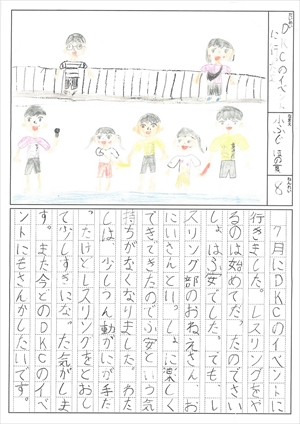 DKCのイベント
8
7月にDKCのイベントに
行きました。レスリングをや
るのは始めてだったのでさい
しょはふ安でした。でも、レ
スリング部のおねえさん、お
にいさんといっしょに楽しく
できてきたのでふ安という気
持ちがなくなりました。わた
しは、少しうん動がにが手だ
ったけどレスリングをとおし
て少しすきになった気がしま
す。また今どのDKCのイベ
ントにもさんかしたいです。